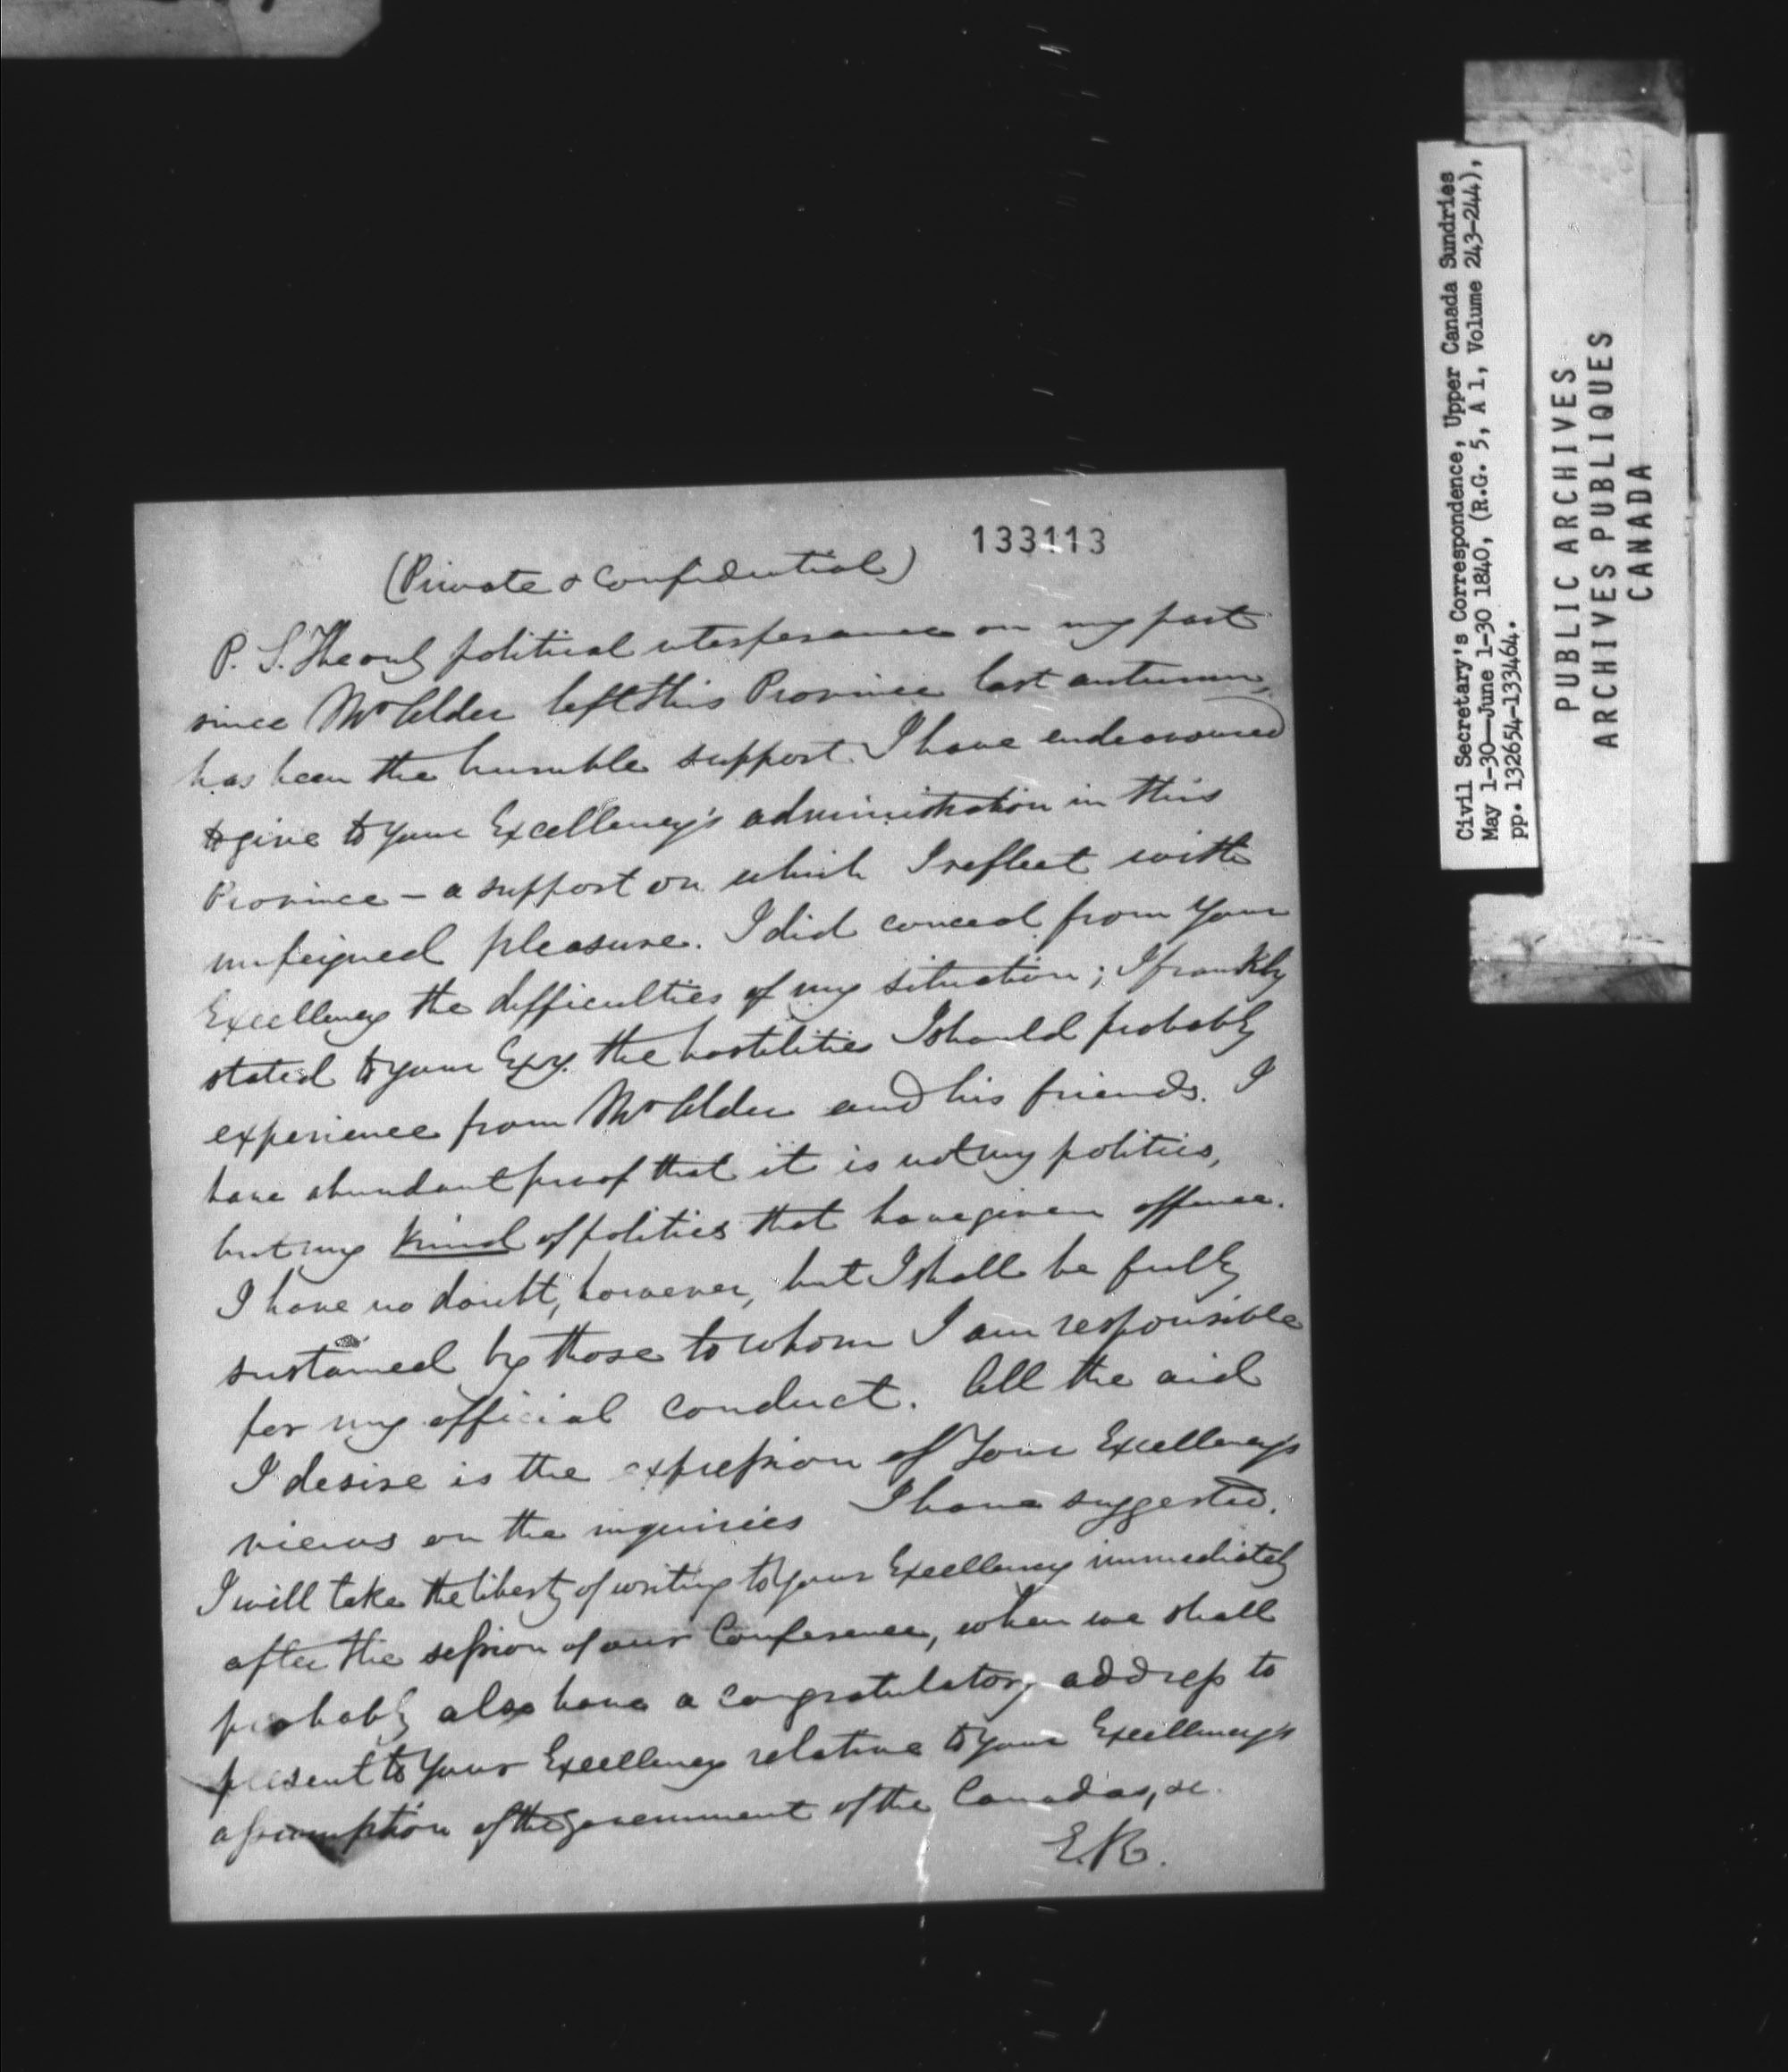 133113
(Private & Confidential)
P. S. The only political interferance on my part
since Mr Alder left this Province last autumn,
has been the humble support I have endeavoured
to give to your Excellency's administration in this
Province – a support on which I reflect with
unfeigned pleasure. I did conceal from Your
Excellency the difficulties of my situation; I frankly
stated to your Exy. the hostilities I should probably
experience from Mr Alder and his friends. I
have abundant proof that it is not my politics,
but my kind of politics that have given offence.
I have no doubt, however, but I shall be fully
sustained by those to whom I am responsible
for my official conduct. All the aid
I desire is the expression of Your Excellency's
views on the inquiries I have suggested.
I will take the liberty of writing to Your Excellency immediately
after the session of our Conference, when we shall
probably also have a congratulatory address to
present to Your Excellency relative to your Excellency's
assumption of the government of the Canadas, &c.
E.R.
Civil Secretary's Correspondence, Upper Canada Sundries
May 1-30—June 1-30 1840, (R.G. 5, A 1, Volume 243-244),
pp. 132654-133464.
PUBLIC ARCHIVES
ARCHIVES PUBLIQUES
CANADA